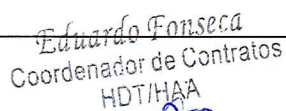 Eduardo Fonseca
Coordenador de Contratos
HDT/HAA